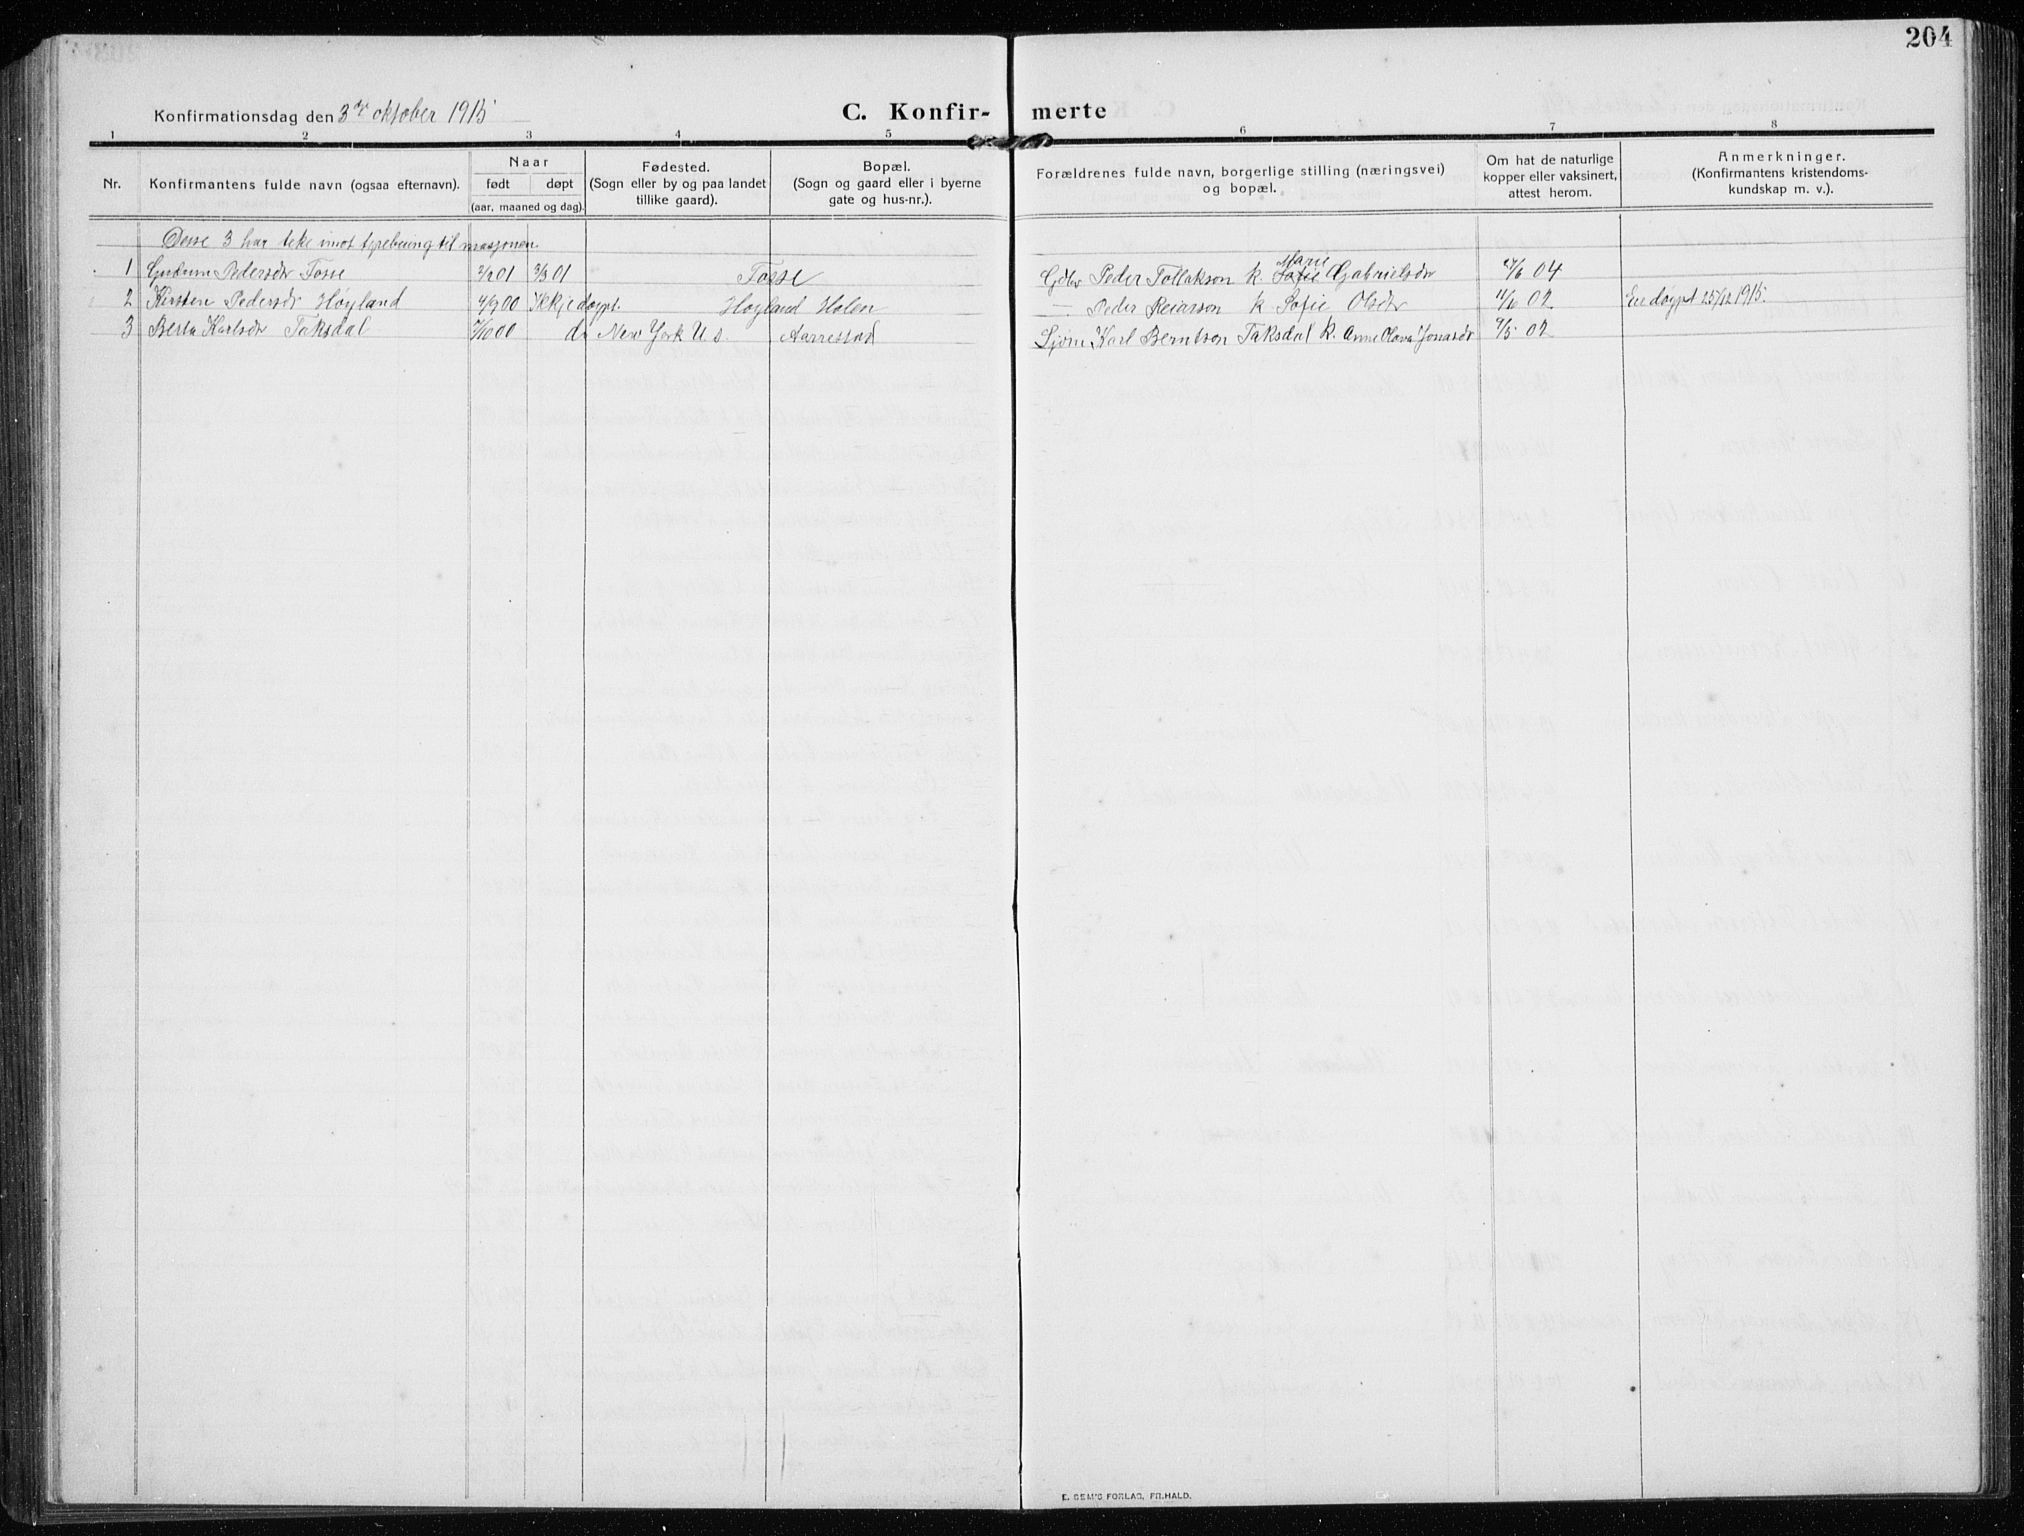 204
Konfirmationsdag den 3de oktober 1915
C. Konfir- merte
1 2 3 4 5 6 7 8
Nr.
Konfirmantens fulde navn (ogsaa efternavn).
Naar
født døpt
(aar, maaned og dag).
Fødested.
(Sogn eller by og paa landet
tillike gaard).
Bopæl.
(Sogn og gaard eller i byerne
gate og hus-nr.).
Forældrenes fulde navn, borgerlige stilling (næringsvei)
og bopæl.
Om hat de naturlige
kopper eller vaksinert,
attest herom.
Anmerkninger.
(Konfirmantens kristendoms-
kundskap m. v.).
Desse 3 har teke imot fyrebuing til
1 Pedersdr Fosse 3/3 01 Fosse Gdbr Peder Tollakson k. Marie Gabrielsdr 04
2 Kirsten Pedersdr Høyland 4/9 00 Ikkje døypt. Høyland Holen — Peder Reiarson k Sofie Olsdr 11/6 02 Er døypt 25/12 1915.
3 Berta Karlsdr Taksdal 00 do New York U.S. Aarrestad Karl Berntson Taksdal k. Anne Olava Jonasdr 9/5 02
E. SEM'S FORLAG, FR.HALD.